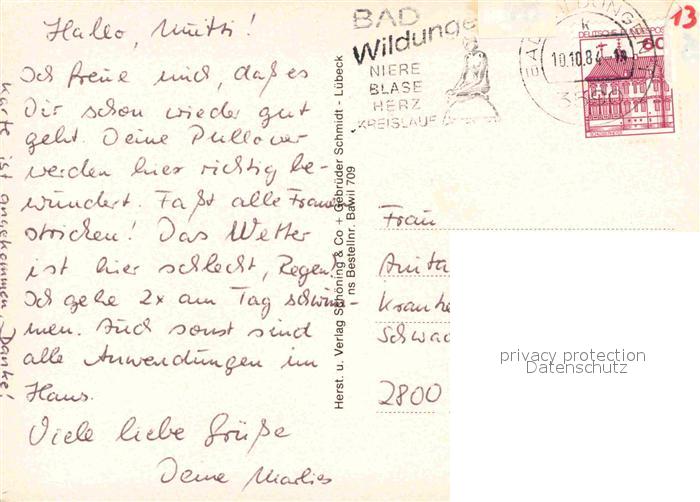 Hallo, Mutti!
Ich freue mich, daß es
Dir schon wieder gut
geht. Deine Pullover
werden hier richtig be-
wundert. Fast alle Frauen
stricken! Das Wetter
ist hier schlecht, Regen!
Ich gehe 2x am Tag schwim-
men. Auch sonst sind
alle Anwendungen im
Haus.
Viele liebe Grüße
Deine Marlies
Karte ist angekommen, Danke!
Herst. u. Verlag Schöning & Co + Gebrüder Schmidt - Lübeck
ns Bestellnr. Bawil 709
BAD
Wildunge
NIERE
BLASE
HERZ
KREISLAUF
10.10.8
DEUTSCHE BUNDESPOST
60
13
Frau
Anita
Kranke
Schwac
2800
privacy protection
Datenschutz